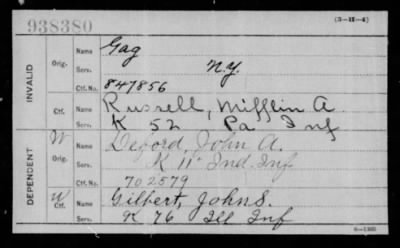 938380
(3-H-4)
INVALID
Orig.
Name Gag
Serv. N.Y.
Ctf. No. 847856
Ctf.
Name Russell, Mifflin A.
Serv. K 52 Pa Inf
DEPENDENT
W
Orig.
Name Deford, John A.
Serv. K 11" Ind. Inf
Ctf. No. 702579
W
Ctf.
Name Gilbert, John S.
Serv. K 76 Ill Inf